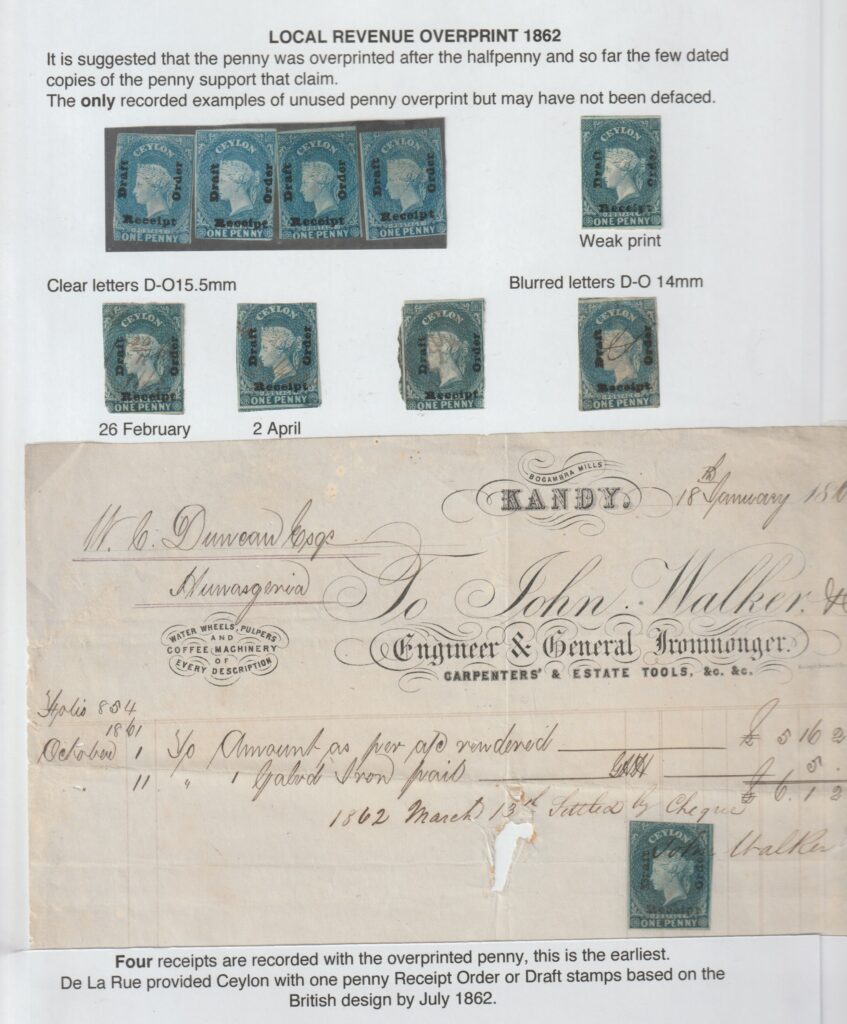 LOCAL REVENUE OVERPRINT 1862
It is suggested that the penny was overprinted after the halfpenny and so far the few dated
copies of the penny support that claim.
The only recorded examples of unused penny overprint but may have not been defaced.
CEYLON CEYLON CEYLON CEYLON CEYLON
Draft Order Draft Order Draft Order Draft Order Draft Order
Receipt Receipt Receipt Receipt Receipt
POSTAGE POSTAGE POSTAGE POSTAGE POSTAGE
ONE PENNY ONE PENNY ONE PENNY ONE PENNY ONE PENNY
Weak print
Clear letters D-O15.5mm Blurred letters D-O 14mm
CEYLON CEYLON CEYLON CEYLON
Draft Order Draft Order Draft Order Draft Order
Receipt Receipt Receipt Receipt
POSTAGE POSTAGE POSTAGE POSTAGE
ONE PENNY ONE PENNY ONE PENNY ONE PENNY
26 February 2 April
BOGAMBRA MILLS
KANDY. 18th January 186
W. C. Duncan Esqr
Hunasgeria
To John Walker. &
WATER WHEELS, PULPERS
AND
COFFEE MACHINERY
OF
EVERY DESCRIPTION
Engineer & General Ironmonger.
CARPENTERS' & ESTATE TOOLS, &c. &c.
Folio 854
1861
October 1 To Amount as per a/c rendered £ 5 16 2
" 11 " 1 Galvd Iron pail 5 "
£ 6. 1 2
1862 March 13th Settled by Cheque
John Walker
CEYLON
Draft Order
Receipt
POSTAGE
ONE PENNY
Four receipts are recorded with the overprinted penny, this is the earliest.
De La Rue provided Ceylon with one penny Receipt Order or Draft stamps based on the
British design by July 1862.